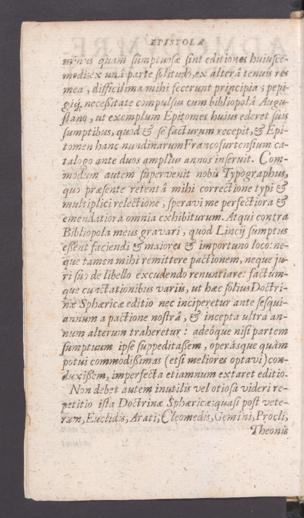 EPISTOLA
minus quàm sumptuosæ sint editiones huiusce-
modi: ex unâ parte solitudo, ex alterâ tenuis res
mea, difficilima mihi fecerunt principia; pepi-
gíq; necessitate compulsus cum bibliopolâ Augu-
stano, ut exemplum Epitomes huius ederet suis
sumptibus, quod & se facturum recepit, & Epi-
tomen hanc nundinarum Francofurtensium ca-
talogo ante duos ampliùs annos inseruit. Com-
modùm autem supervenit nobis Typographus,
quo præsente retentâ mihi correctione typi &
multiplici relectione, speravi me perfectiora &
emendatiora omnia exhibiturum. Atqui contra
Bibliopola meus gravari, quod Lincij sumptus
essent faciendi & maiores & importuno loco: ne-
que tamen mihi remittere pactionem, neque ju-
ri suo de libello excudendo renuntiare: factúm-
que cunctationibus varijs, ut hæc solius Doctri-
næ Sphæricæ editio nec inciperetur ante sesqui-
annum a pactione nostrâ, & incepta ultra an-
num alterum traheretur: adeóque nisi partem
sumptuum ipse suppeditassem, operásque quàm
potui commodissimas (etsi meliores optavi) con-
duxissem, imperfecta etiamnum extaret editio.
Non debet autem inutilis vel otiosa videri re-
petitio ista Doctrinæ Sphæricæ: quasi post vete-
rum, Euclidis, Arati, Cleomedis, Gemini, Procli,
Theonis